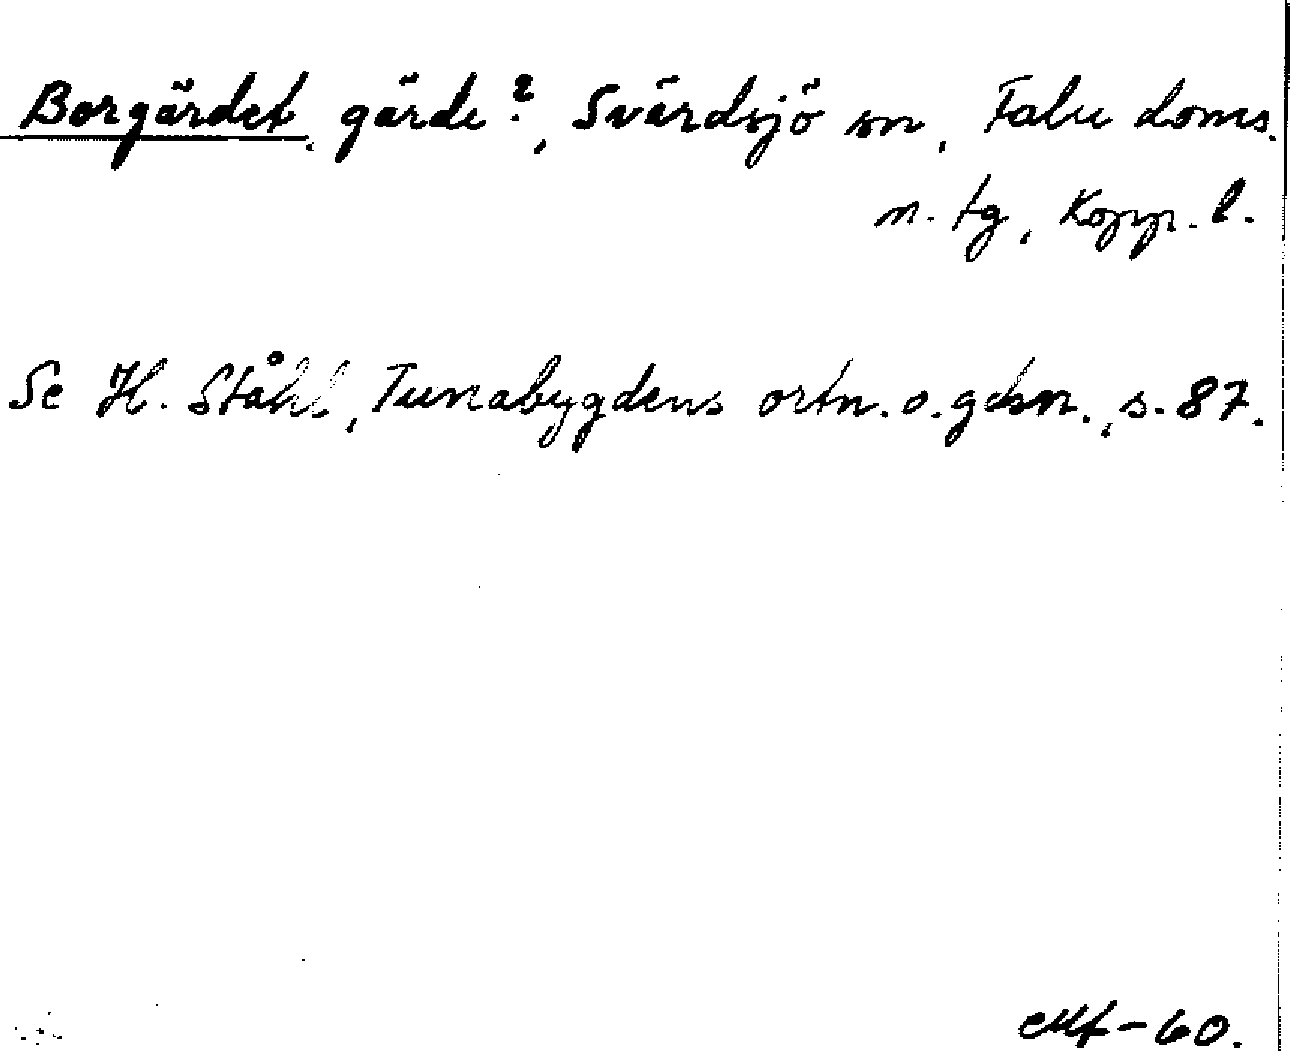 Borgärdet, gärde?, Svärdsjö sn, Falu doms.
n. tg, Kopp. l.
Se H. Ståhl, Tunabygdens ortn. o. gdsn., s. 87.
Mf-60.